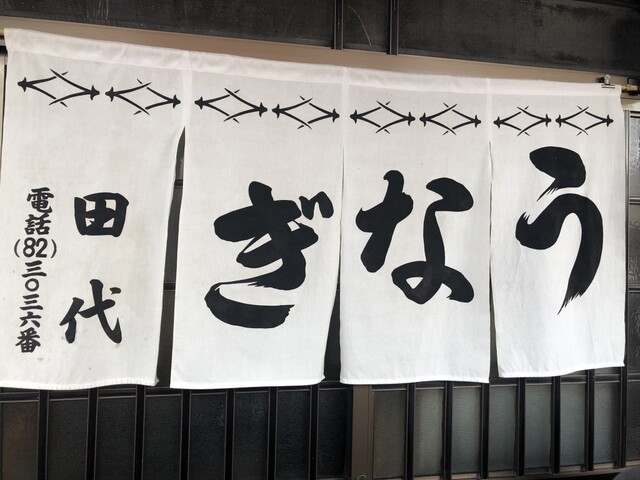 うなぎ
田代
電話(82)三〇三六番